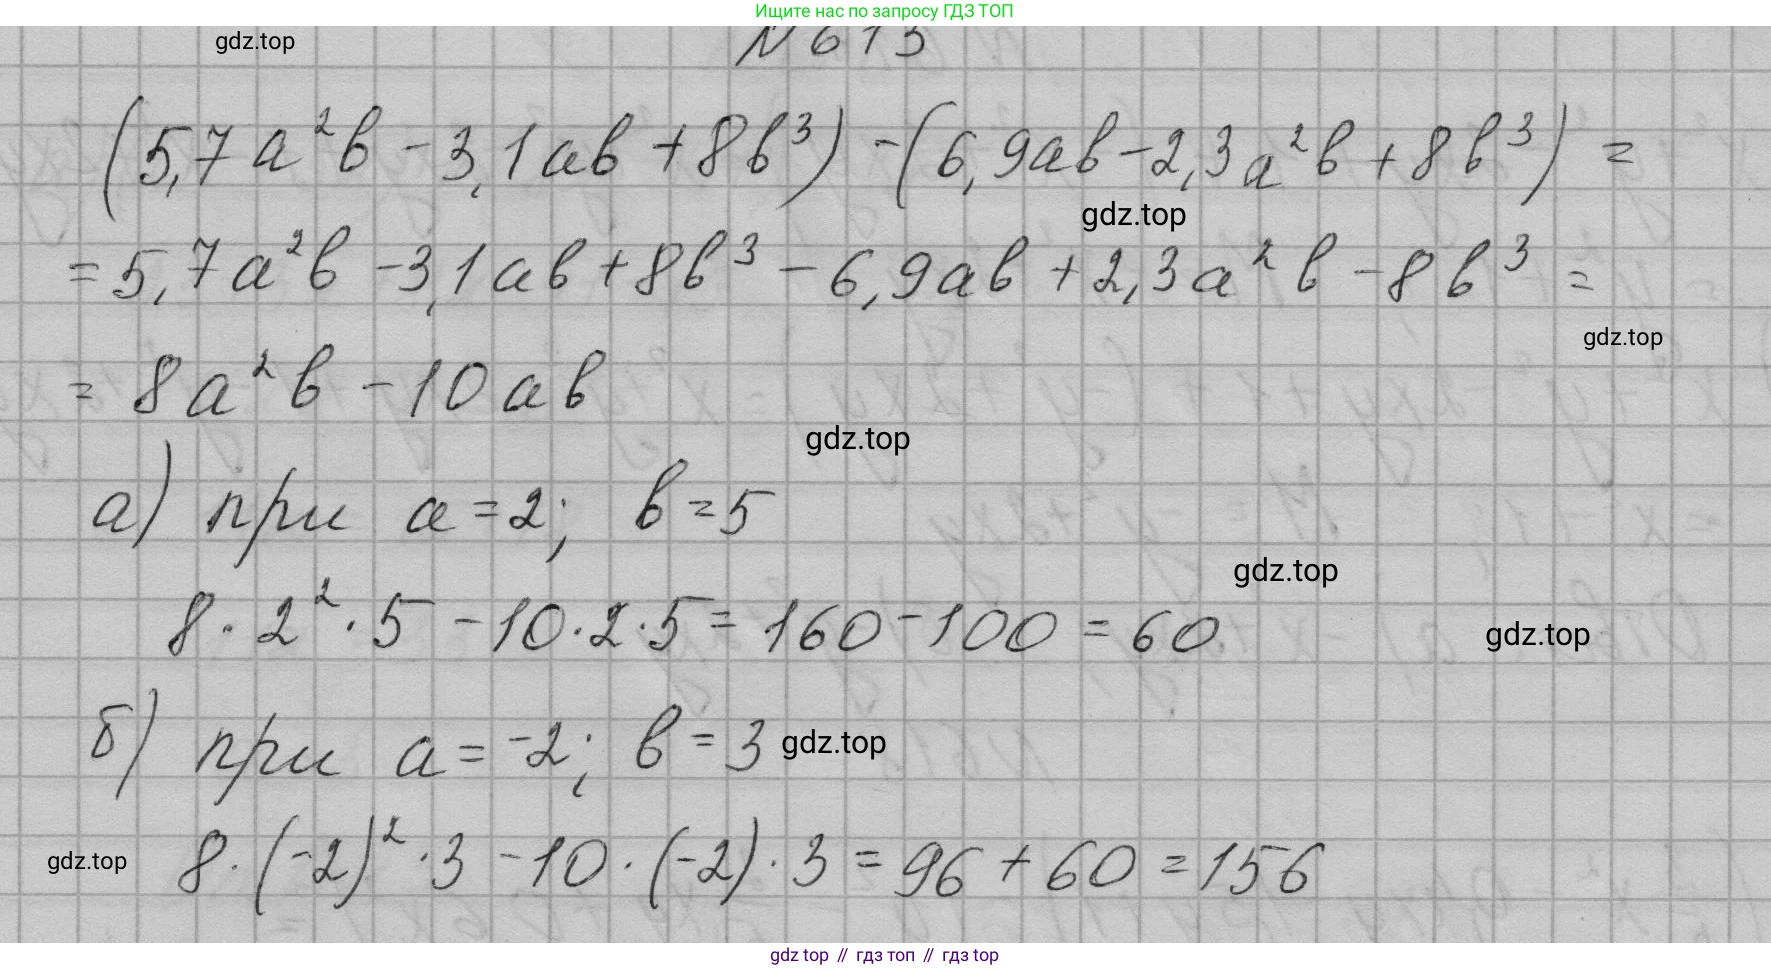 Ищите нас по запросу ГДЗ ТОП
gdz.top
N 613
(5,7a²b - 3,1ab + 8b³) - (6,9ab - 2,3a²b + 8b³) =
gdz.top
= 5,7a²b - 3,1ab + 8b³ - 6,9ab + 2,3a²b - 8b³ =
gdz.top
= 8a²b - 10ab
gdz.top
а) при a = 2; b = 5
gdz.top
8 · 2² · 5 - 10 · 2 · 5 = 160 - 100 = 60.
gdz.top
б) при a = -2; b = 3
gdz.top
8 · (-2)² · 3 - 10 · (-2) · 3 = 96 + 60 = 156
gdz.top
gdz top // гдз топ // гдз top